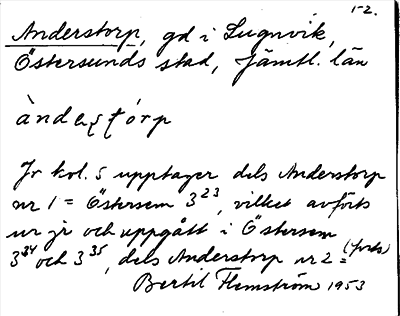 1-2.
Anderstorp, gd i Lugnvik,
Östersunds stad, Jämtl. län
Jr kol. 5 upptager dels Anderstorp
nr 1 = Östersem 3²³, vilket avförts
ur jr och uppgått i Östersem
3³⁴ och 3³⁵, dels Anderstorp nr 2 = (forts)
Bertil Flemström 1953